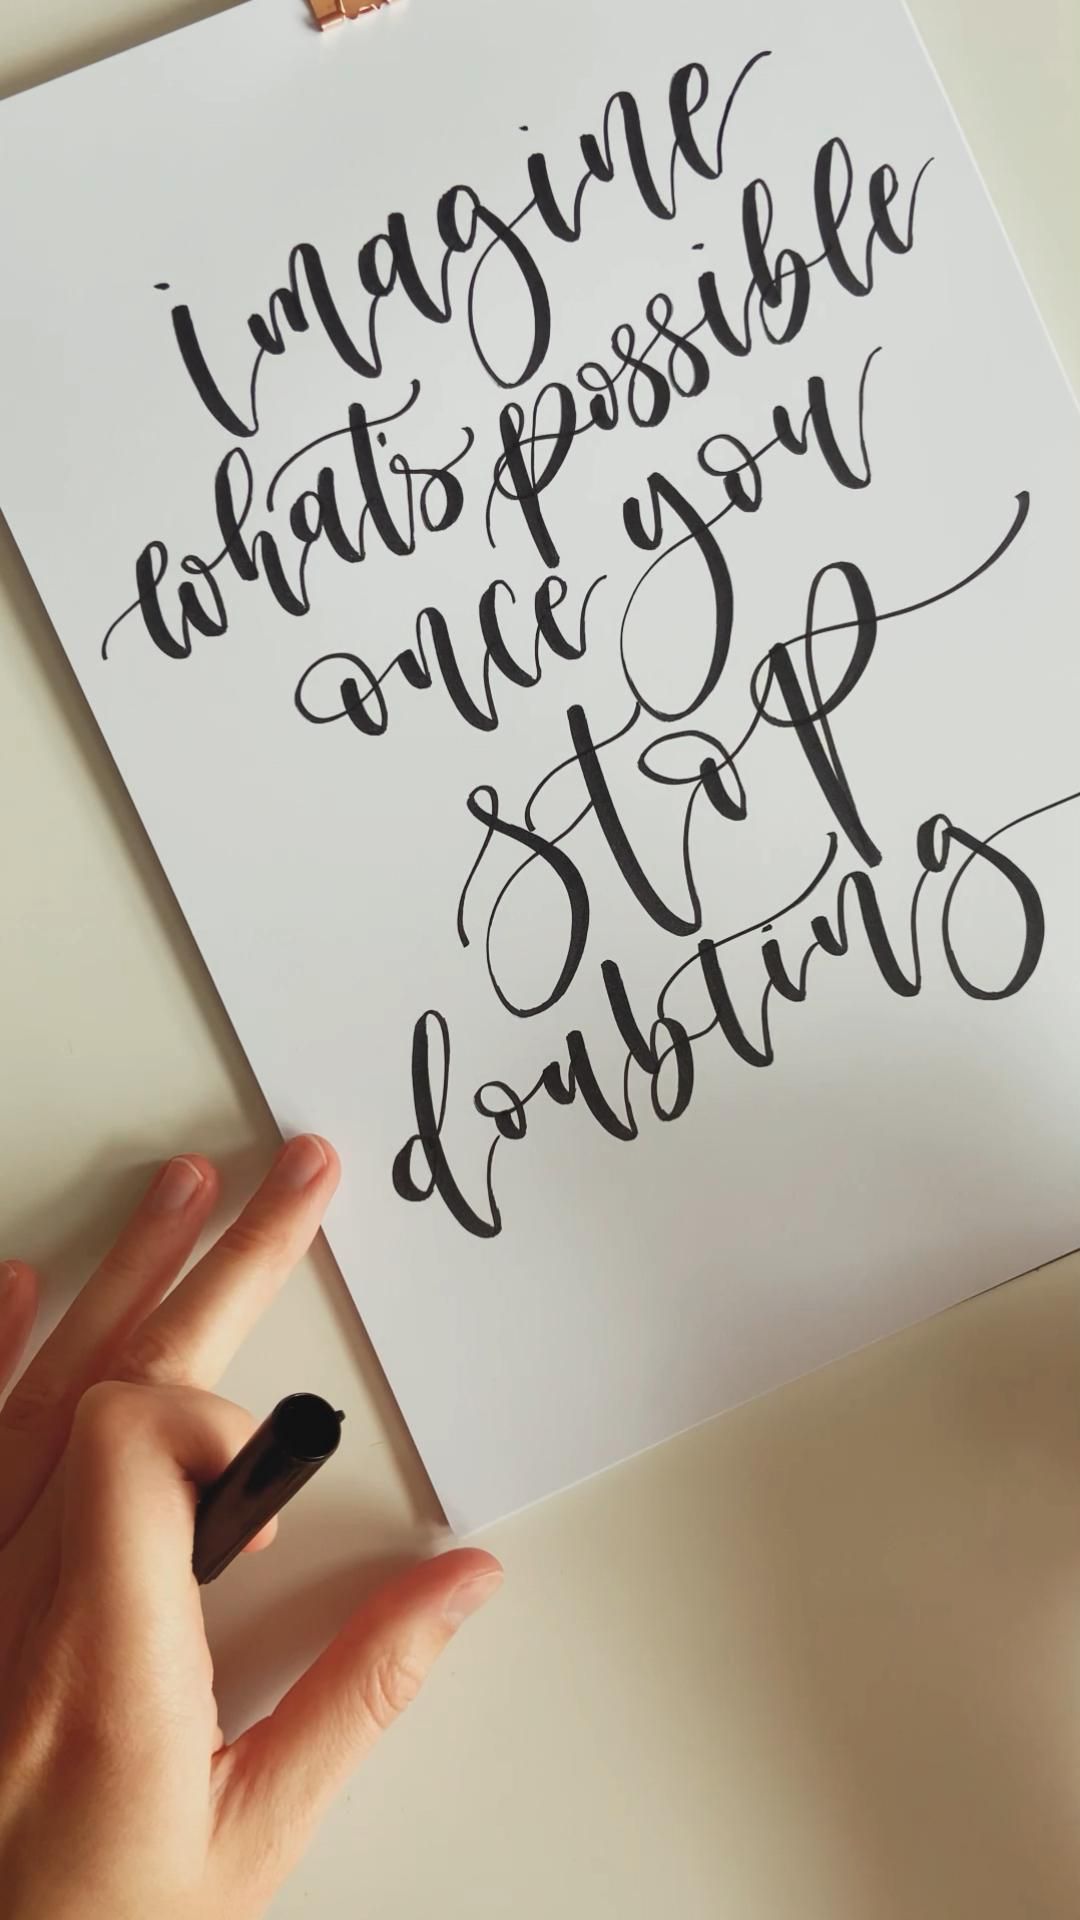 imagine
what's possible
once you
stop
doubting